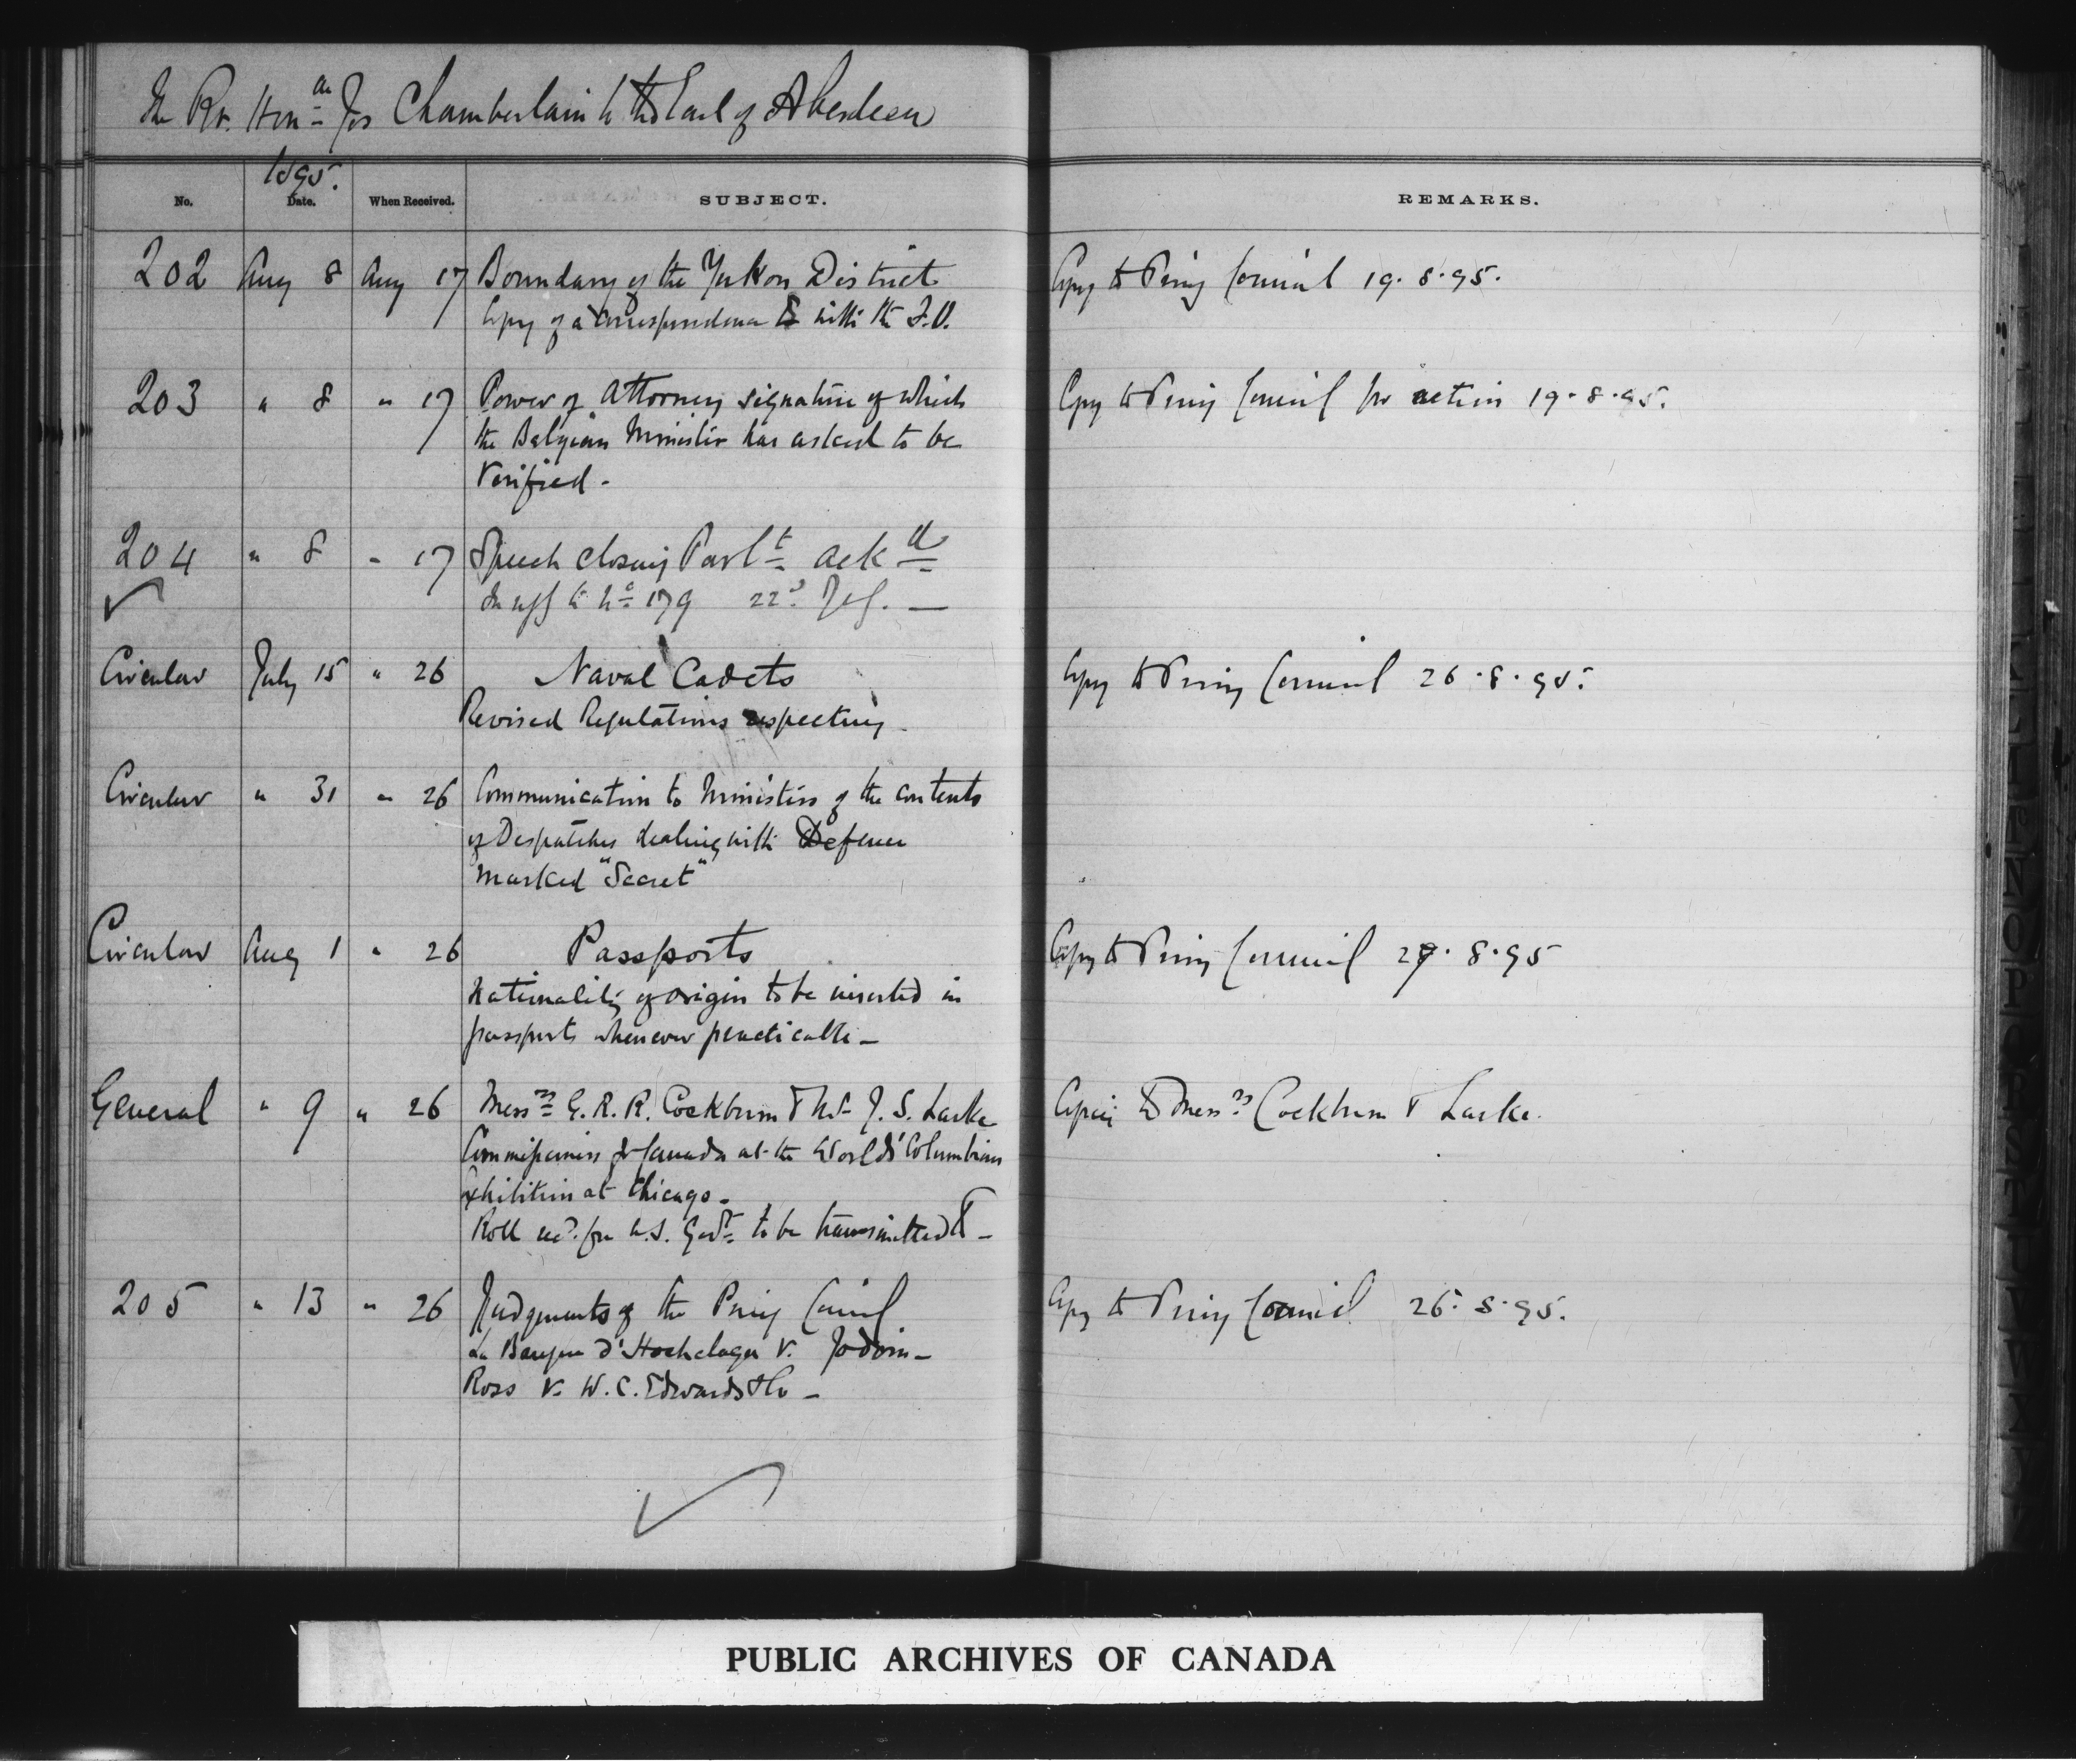 The Rt. Honble Jos Chamberlain to the Earl of Aberdeen
1895.
No. Date. When Received. SUBJECT. REMARKS.
202 Aug 8 Aug 17 Boundary of the Yukon District Copy to Privy Council 19.8.95.
Copy of a correspondence with the F.O.
203 " 8 " 17 Power of Attorney signature of which Copy to Privy Council for action 19.8.95.
the Belgian Minister has asked to be
verified -
204 " 8 " 17 Speech closing Parlt ackd
In repl to No 179 22d July. —
Circular July 15 " 26 Naval Cadets Copy to Privy Council 26.8.95.
Revised Regulations respecting
Circular " 31 " 26 Communication to Ministers of the contents
of Despatches dealing with Defence
marked "Secret"
Circular Aug 1 " 26 Passports Copy to Privy Council 27.8.95
Nationality of origin to be inserted in
passports whenever practicable -
General " 9 " 26 Messrs G. R. R. Cockburn & Mr J. S. Larke Copies to Messrs Cockburn & Larke.
Commissioners for Canada at the World's Columbian
Exhibition at Chicago -
Roll recd. from U.S. Govt. to be transmitted to -
205 " 13 " 26 Judgments of the Privy Council Copy to Privy Council 26.8.95.
La Banque d'Hochelaga v. Jodoin -
Ross v. W. C. Edwards & Co -
PUBLIC ARCHIVES OF CANADA